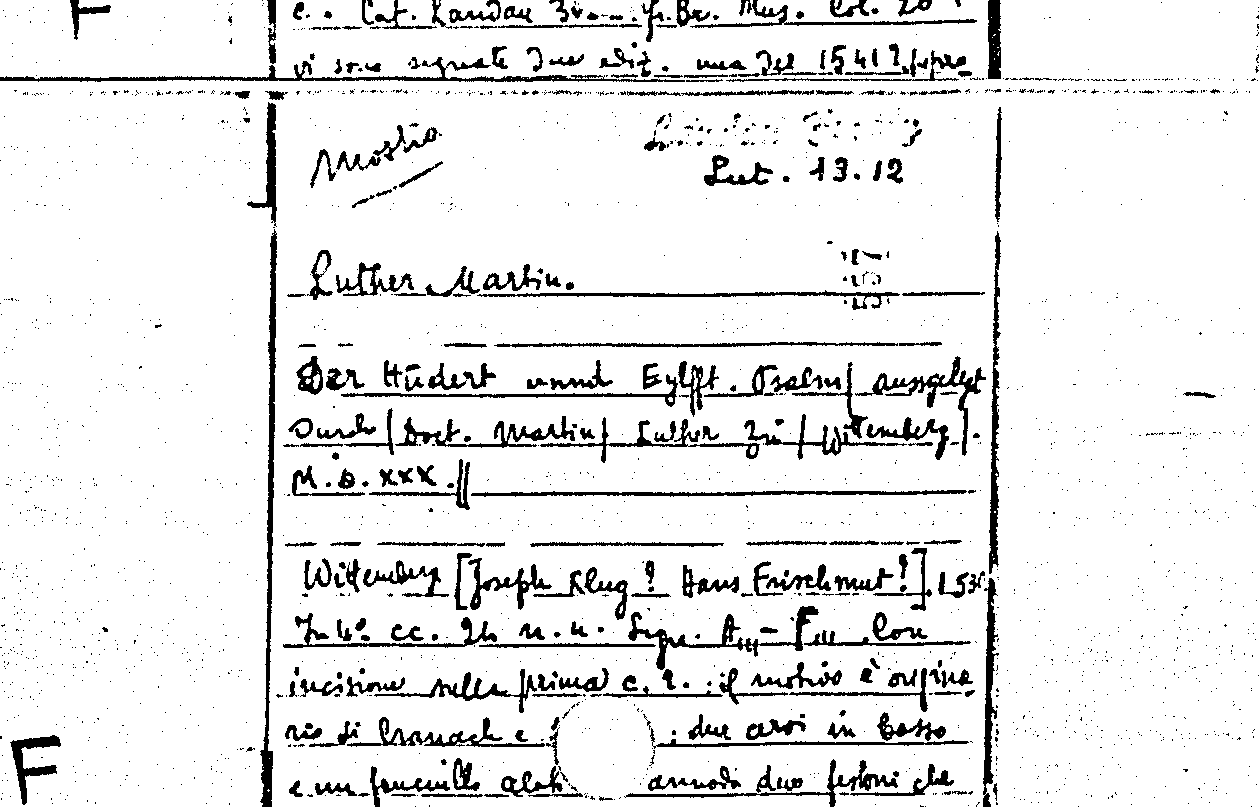 F
c. Cat. Landau Br. Mus. Col. 20
vi sono segnate due ediz. ma del 1541?
Mostra
Landau Finaly
Lut. 13.12
Luther Martin.
Der Hūdert unnd Eylfft. Psalm| ausgelegt
Durch| Doct. Martin| Luther zu| Wittemberg|.
M.D.XXX.||
Wittemberg [Joseph Klug? Hans Frischmut?]. 153
In 4°. cc. 24 n. n. Segn. Aiii- Fiii. Con
incisione nella prima c. r. : il motivo è origina
rio di Cranach e : due cervi in basso
e un fanciullo alato annoda due festoni che
F